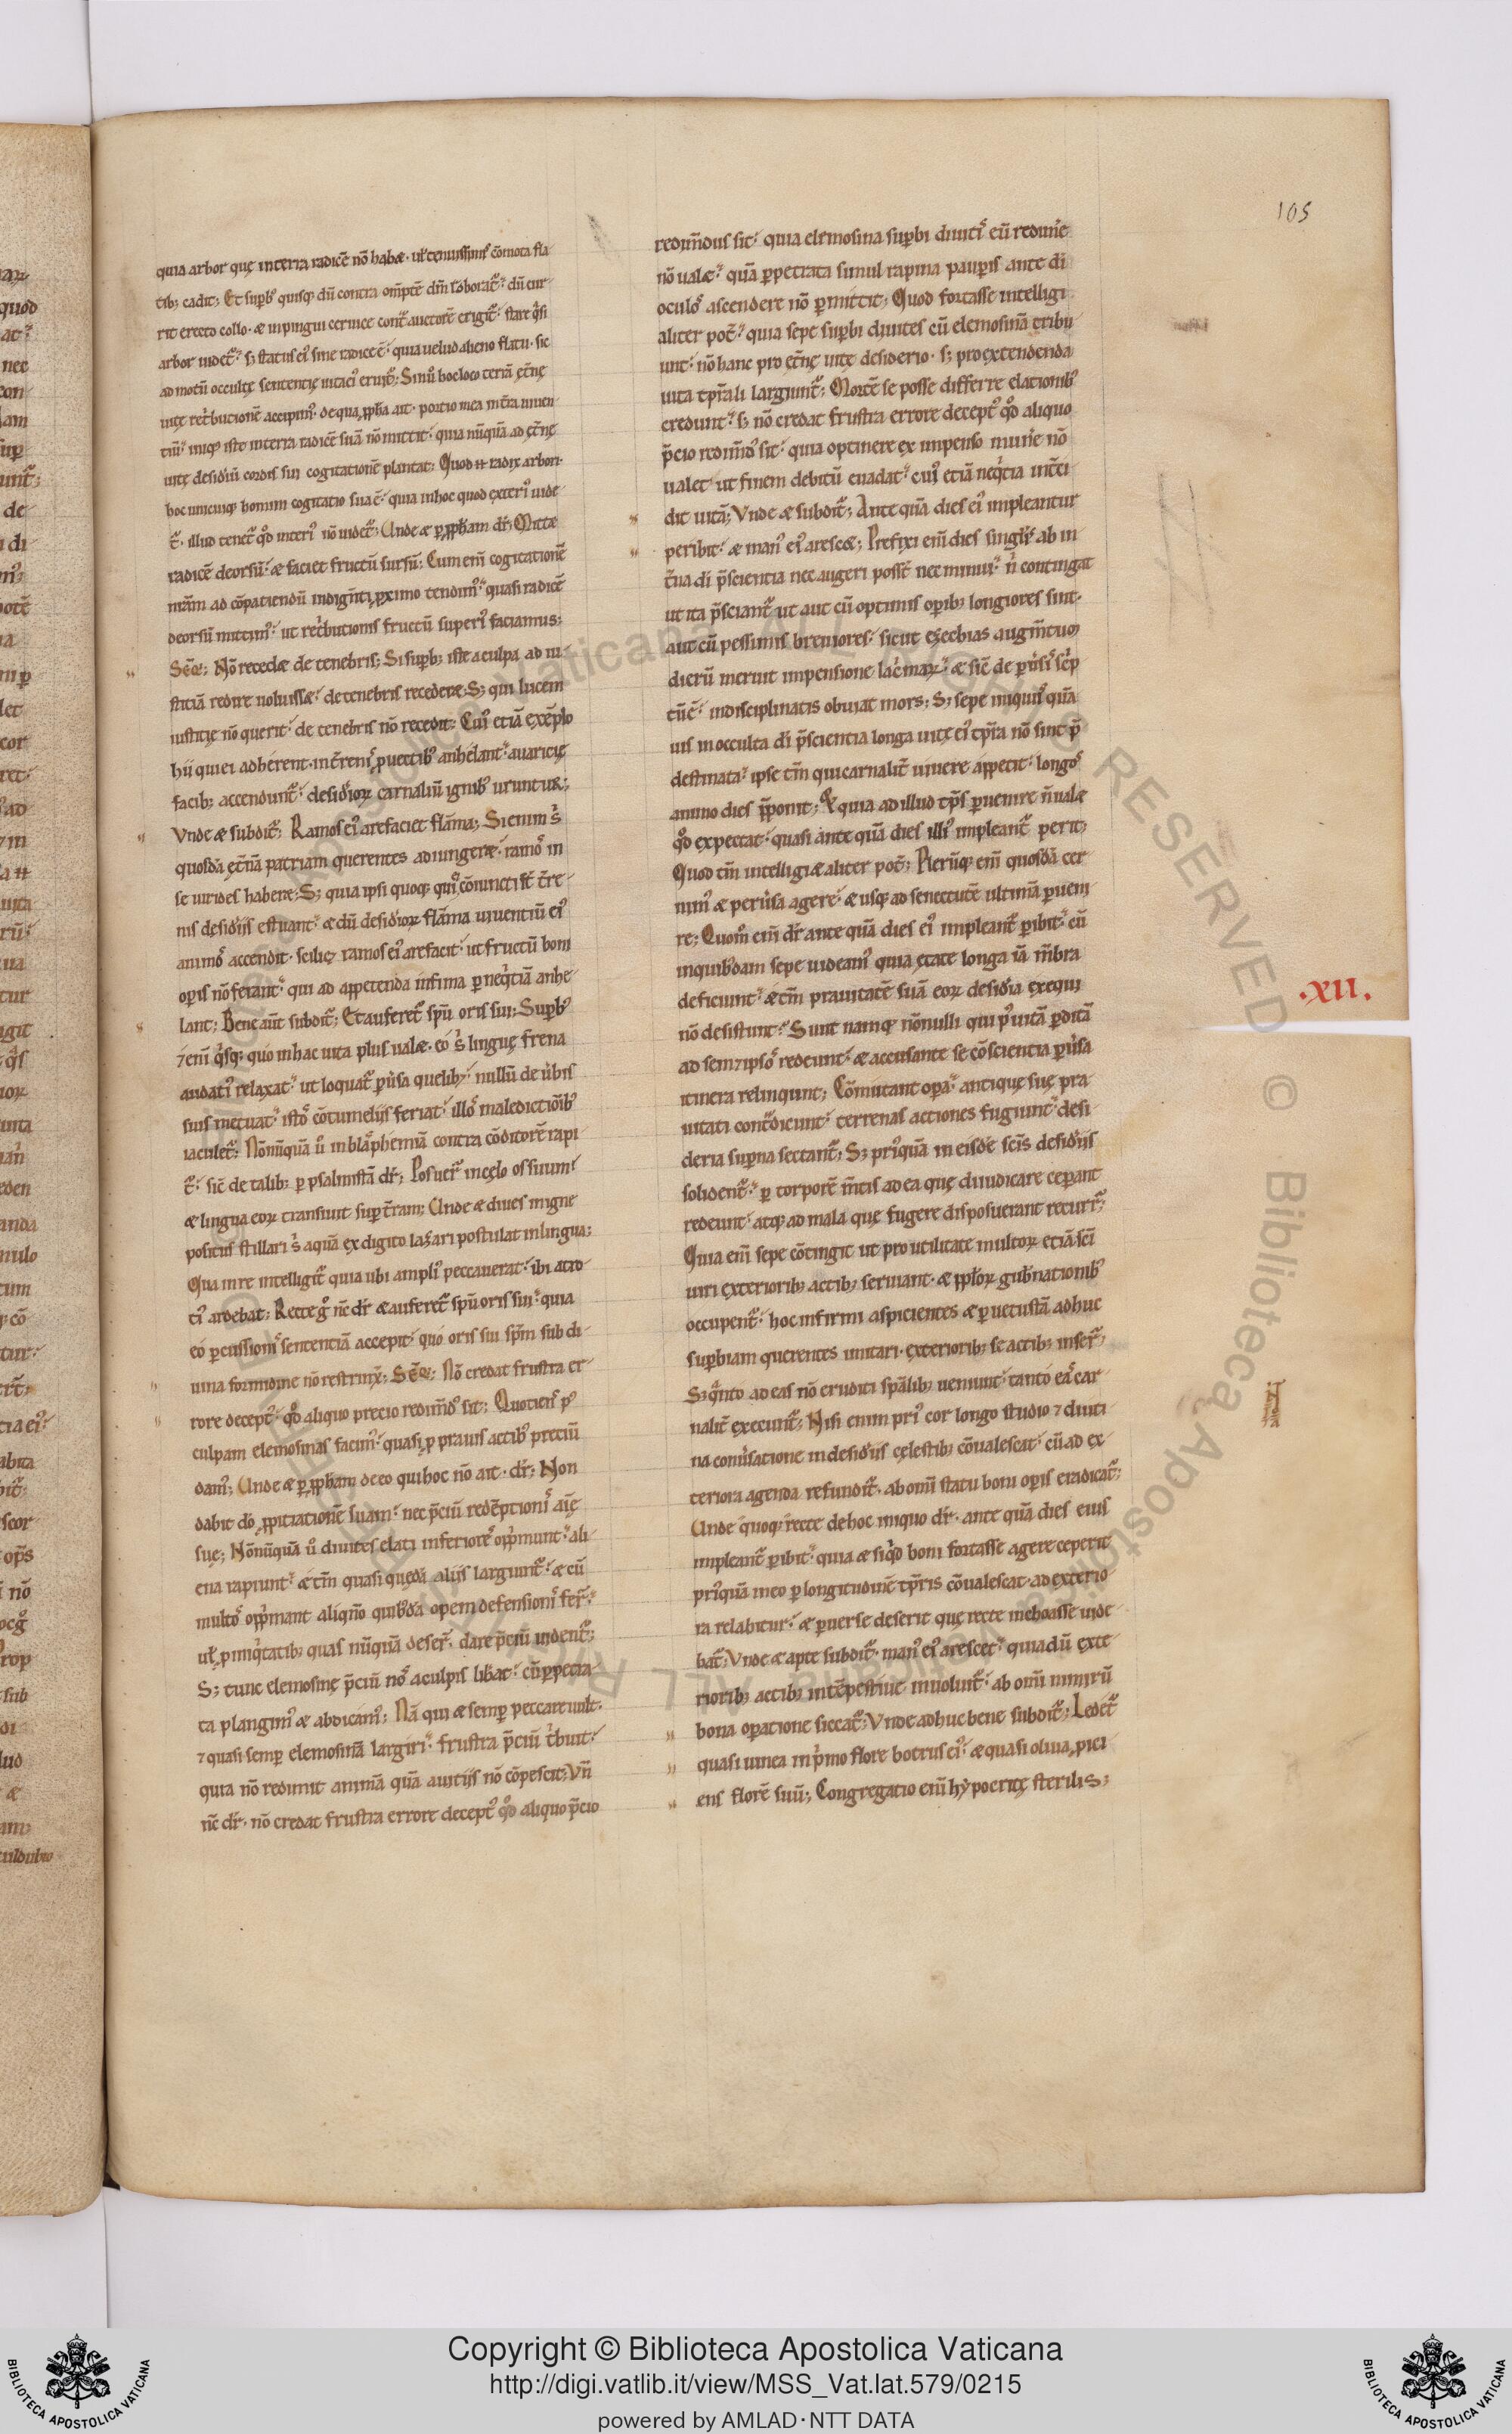 105
quia arbor quę in terra radicē nō habæ· ul' tenuissimo cōmota fla
tib; cadit; Et supbꝰ quisq; dū contra omīptē dm̄ roborat᷑· dū cur
rit erecto collo· æ in pingui ceruice cont̃ auctorē erigit᷑· stare qͥsi
arbor uidet᷑· s; status eiꝰ sine radice ē· quia uelud alieno flatu· sic
ad motū occultę sententię uita eiꝰ eruit᷑;
uitę ret'butionē accipimꝰ· de qua ꝓpħa ait· portio mea in t̃ra uiuen
tiū· iniqꝰ iste in terra radicē suā nō mittit· quia nūquā ad ęt̃nę
uitę desidiū cordis sui cogitationē plantat; Quod ⁊ radix arbori·
hoc unicuiq; homini cogitatio sua ē· quia in hoc quod exteriꝰ uide
t᷑· illud tenet᷑ qd̓ interiꝰ nō uidet᷑; Unde æ p ꝓpħam dr̄; Mittæ
radicē deorsū· æ faciet fructū sursū; Cum eni̅ cogitationē
nr̄am ad cōpatiendū indigēti ꝓximo tendimꝰ· quasi radicē
deorsū mittimꝰ· ut ret'butionis fructū superiꝰ faciamus;
Seq̄; Nō recedæ de tenebris; Si supb; iste a culpa ad iu
sticiā redire uoluissæ· de tenebris recederæ; S; qui lucem
iustitię nō querit· de tenebris nō recedit; Cuiꝰ etiā exēplo
hii qui ei adherent· in t̃reniſ ꝓuectibꝰ anhelant· auaricię
facib; accendunt᷑· desid'ioꝝ carnaliū ignibꝰ urunt̃;
Vnde æ subdit᷑; Ramos eiꝰ arefaciet flāma; Si enim s̓
quosdā ęt̃nā patriam querentes adiungeræ· ramoſ in
se uirides haberæ; S; quia ipsi quoq; qui ei cōiuncti s̅t t̃re
nis desid'iis estuant· æ dū desid'ioꝝ flāma uiuentiū eiꝰ
animoſ accendit· scilicꝫ ramos eiꝰ arefacit· ut fructū boni
opis nō ferant· qui ad appetenda infima p neq'tiā anhe
lant; Bene aūt subdit᷑; Et auferet᷑ spū oris sui; Supbꝰ
⁊eni̅ qͥsq; quo in hac uita plus ualæ· eo s̓ linguę frena
audatiꝰ relaxat· ut loquat᷑ puersa quelib;· nullū de u'bis
suis metuat· istoſ cōtumeliis feriat· illoſ maledictiōibꝰ
iaculet᷑; Nōnūquā ů in blaſphemiā contra cōditorē rapi
t᷑· sic̄ de talib; p psalmistā dr̄; Posuer̄ in cęlo os suum·
æ lingua eoꝝ transiuit sup t̃ram; Unde æ diues in igne
positus stillari s̓ aquā ex digito lazari postulat in lingua;
Qua in re intelligit᷑ quia ubi ampliꝰ peccauerat· ibi atro
tiꝰ ardebat; Recte g̊ nc̄ dr̄ æ auferet᷑ spū oris sui· quia
eo pcussioniſ sententiā accepit· quo oris sui spm̄ sub di
uina formidine nō restrinx̄; Seq̄; Nō credat frustra er
rore deceptꝰ· qd̓ aliquo precio redimdꝰ sit; Quotienſ pꝰ
culpam elemosinas facimꝰ· quasi ꝓ prauis actibꝰ preciū
damꝰ; Unde æ p ꝓpħam de eo qui hoc nō ait· dr̄; Non
dabit dō ꝓpitiationē suam· nec p̄ciū redēptioniſ aīę
suę; Nōnūquā ů diuites elati inferioreſ opp̓munt· ali
ena rapiunt· æ tm̄ quasi quędā aliis largiunt᷑· æ cū
multoſ opp̓mant aliqn̄o quibꝰdā opem defensioniſ fer̄t·
ut ꝓ iniq'tatib; quas nūquā deser̄t· dare p̄ciū uident᷑;
S; tunc elemosinę p̄ciū noſ a culpis lib̄at· cū ppetra
ta plangimꝰ æ abdicamꝰ; Nā qui æ semp peccare uult·
⁊ quasi semp elemosinā largiri· frustra p̄ciū t'buit·
quia nō redimit animā quā a uitiis nō cōpescit; Vn̄
nc̄ dr̄· nō credat frustra errore deceptꝰ qd̓ aliquo p̄cio
redim̄dus sit· quia elemosina supbi diuitiſ eū redimē
nō ualæ· quā ppetrata simul rapina paupis ante di̅
oculoſ ascendere nō pmittit; Quod fortasse intelligi
aliter pot̄· quia sepe supbi diuites cū elemosinā tribu
unt· nō hanc pro ęt̃nę uitę desiderio· s; pro extendenda
uita tpr̄ali largiunt᷑; Mortē se posse differre elationibꝰ
credunt· s; nō credat frustra errore deceptꝰ qd̓ aliquo
p̄cio redim̄dꝰ sit· quia optinere ex impenso munē nō
ualet· ut finem debitū euadat· cuiꝰ etiā neq'tia int̃ci
dit uitā; Vnde æ subdit᷑; Ante quā dies eiꝰ impleantur
peribit· æ manꝰ eiꝰ arescæ; Prefixi eni̅ dies singlis ab in
t̃na di̅ p̄scientia nec augeri poss̅t nec minui· n̓ contingat
ut ita p̄sciant᷑ ut aut cū optimis opib; longiores sint·
aut cū pessimis breuiores· sicut ezechias augm̄tuꝫ
dierū meruit impensione lac'maꝝ· æ sic̄ de p̄uersiſ sc̄p
tū ē· indisciplinatis obuiat mors; S; sepe iniquiꝰ quā
uis in occulta di̅ p̄scientia longa uitę eiꝰ tp̄ra nō sint p̄
destinata· ipse tm̄ qui carnalit̃ uiuere appetit· longoſ
animo dies p̄ponit; Et quia ad illud tp̄s puenire n̄ ualæ
qd̓ expectat· quasi ante quā dies illiꝰ impleant᷑ perit;
Quod tm̄ intelligi æ aliter pot̄; Plerūq; eni̅ quosdā cer
nimꝰ æ peruersa agere· æ usq; ad senectutē ultimā pueni
re; Quom̓ eni̅ dr̄ ante quā dies eiꝰ impleant᷑ pibit· cū
in quibꝰdam sepe uideamꝰ quia ętate longa iā m̄bra
deficiunt· æ tm̄ prauitatē suā eoꝝ desid'ia exequi
nō desistunt· Sunt namq; nōnulli qui pꝰ uitā pditā
ad semetipsoſ redeunt· æ accusante se cōscientia puersa
itinera relinquunt; Cōmutant opa· antiquę suę pra
uitati cont̃dicunt· terrenas actiones fugiunt· desi
deria supna sectant᷑; S; priꝰquā in eisdē scīs desid'iis
solident᷑· p torporē m̄tis ad ea quę diiudicare ceperant
redeunt· atq; ad mala quę fugere disposuerant recurr̄t;
Quia eni̅ sepe cōtingit ut pro utilitate multoꝝ etiā sc̄i
uiri exteriorib; actib; seruiant· æ pploꝝ gub̄nationibꝰ
occupent᷑· hoc infirmi aspicientes æ p uetustā adhuc
supbiam querentes imitari· exteriorib; se actib; inser̄t·
S; qͣnto ad eas nō eruditi sp̄alib; ueniunt· tanto eaſ car
nalit̃ execunt᷑; Nisi enim priꝰ cor longo studio ⁊ diuti
na conuersatione in desid'iis cęlestib; cōualescat· cū ad ex
teriora agenda refundit᷑· ab omi̅ statu boni opis eradicat᷑;
Unde quoq; recte de hoc iniquo dr̄· ante quā dies eius
impleant᷑ pibit· quia æ siqͥd boni fortasse agere ceperit
priꝰquā in eo p longitudinē tp̄ris cōualescat· ad exterio
ra relabitur· æ puerse deserit quę recte inchoasse uide
bat᷑; Vnde æ apte subdit᷑· manꝰ eiꝰ arescet· quia dū exte
riorib; actib; intēpestiue inuoluit᷑· ab omi̅ nimirū
bona opatione siccat᷑; Vnde adhuc bene subdit᷑; Ledet᷑
quasi uinea in p̓mo flore botrus eiꝰ· æ quasi oliua ꝓici
ens florē suū; Congregatio eni̅ hypocritę sterilis;
·XII·
Copyright © Biblioteca Apostolica Vaticana
http://digi.vatlib.it/view/MSS_Vat.lat.579/0215
powered by AMLAD·NTT DATA
BIBLIOTECA APOSTOLICA VATICANA
BIBLIOTECA APOSTOLICA VATICANA